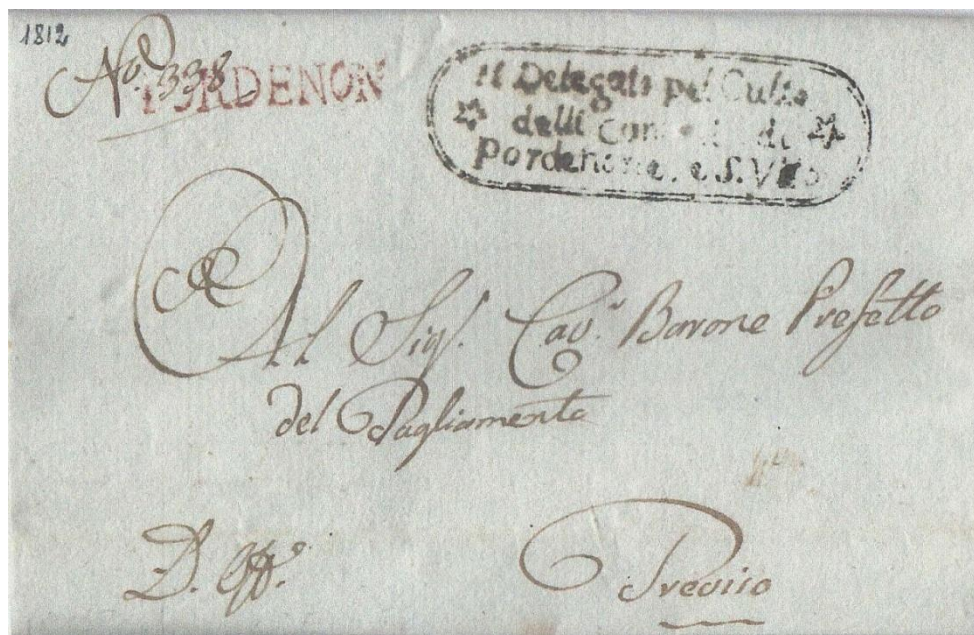 1812
No. 338
PORDENON
Il Delegato pel Culto
delli Cantoni di
Pordenone, e S. Vito
Al Sigr. Cavr. Barone Prefetto
del Tagliamento
D. Uffo.
Treviso